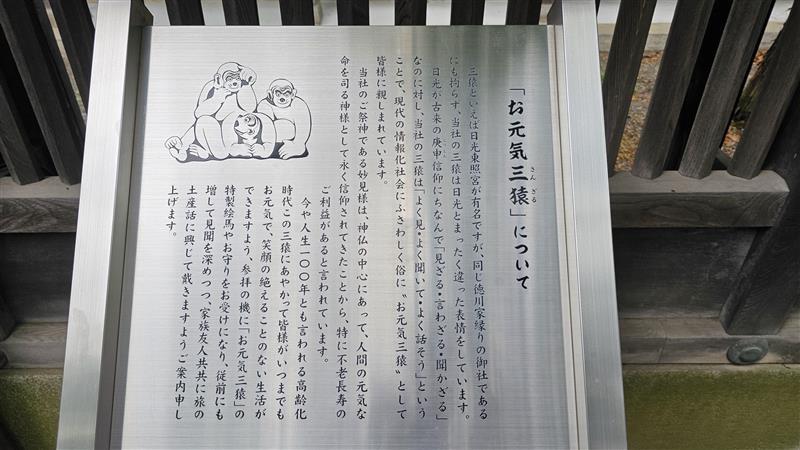 「お元気三猿」について
さんざる
三猿といえば日光東照宮が有名ですが、同じ徳川家縁りの御社である
にも拘らず、当社の三猿は日光とまったく違った表情をしています。
日光が古来の庚申信仰にちなんで「見ざる・言わざる・聞かざる」
なのに対し、当社の三猿は「よく見・よく聞いて・よく話そう」という
ことで、現代の情報化社会にふさわしく俗に〝お元気三猿〟として
皆様に親しまれています。
当社のご祭神である妙見様は、神仏の中心にあって、人間の元気な
命を司る神様として永く信仰されてきたことから、特に不老長寿の
ご利益があると言われています。
今や人生一〇〇年とも言われる高齢化
時代この三猿にあやかって皆様がいつまでも
お元気で、笑顔の絶えることのない生活が
できますよう、参拝の機に「お元気三猿」の
特製絵馬やお守りをお受けになり、従前にも
増して見聞を深めつつ、家族友人共共に旅の
土産話に興じて戴きますようご案内申し
上げます。